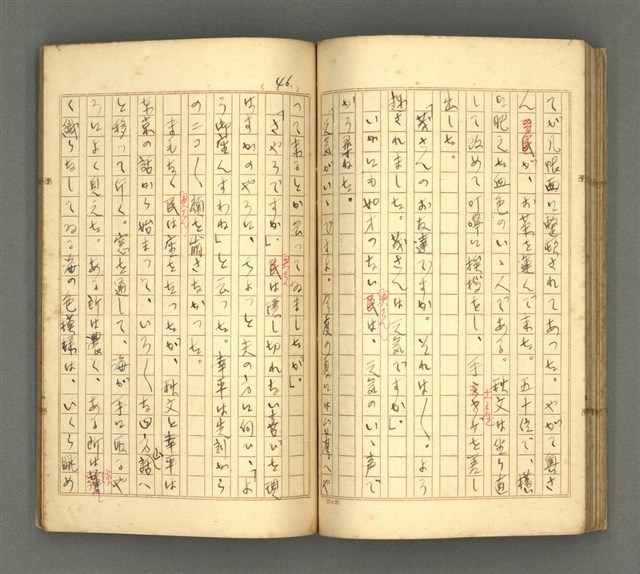 てが几帳面に整頓されてあつた。やがて奥さ
んが、お茶を運んで来た。五十位で、横
に肥えた血色のいゝ人である。秋文は坐り直
して改めて叮嚀に挨拶をし、手を差し
出した。
「茂さんのお友達ですか。それは〱。よう
こそされました。茂さんは元気ですか」
いかにも如才のない民は、元気のいゝ声で
から尋ねた。
「元気がいゝですよ。今度の夏には台湾へや
46.
つて来るとか云つてゐましたが」
「さやうですか」民は隠し切れない喜びを現
はすかのやうに、ちよつと夫の方に伺ひ、「よ
う御座んすわね」と云つた。幸平は先刻から
のニコ〱顔を崩さなかつた。
まもなく民は座を立つたが、秋文と幸平は
東京の話から始まつて、いろ〱な四方山話へ
と移つて行く。窓を通して、海が手に取るや
うによく見えた。ある所は濃く、ある所は薄
く織りなしてゐる海の色模様は、いくら眺め
奥さん
奥さん